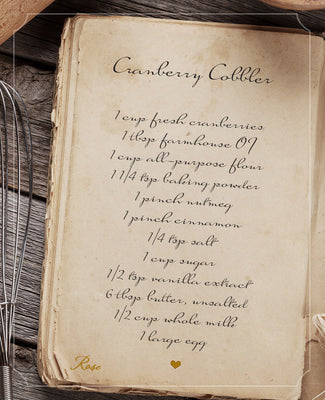 Cranberry Cobbler
1 cup fresh cranberries
1 tbsp farmhouse OJ
1 cup all-purpose flour
1 1/4 tsp baking powder
1 pinch nutmeg
1 pinch cinnamon
1/4 tsp salt
1 cup sugar
1/2 tsp vanilla extract
6 tbsp butter, unsalted
1/2 cup whole milk
1 large egg
Rose